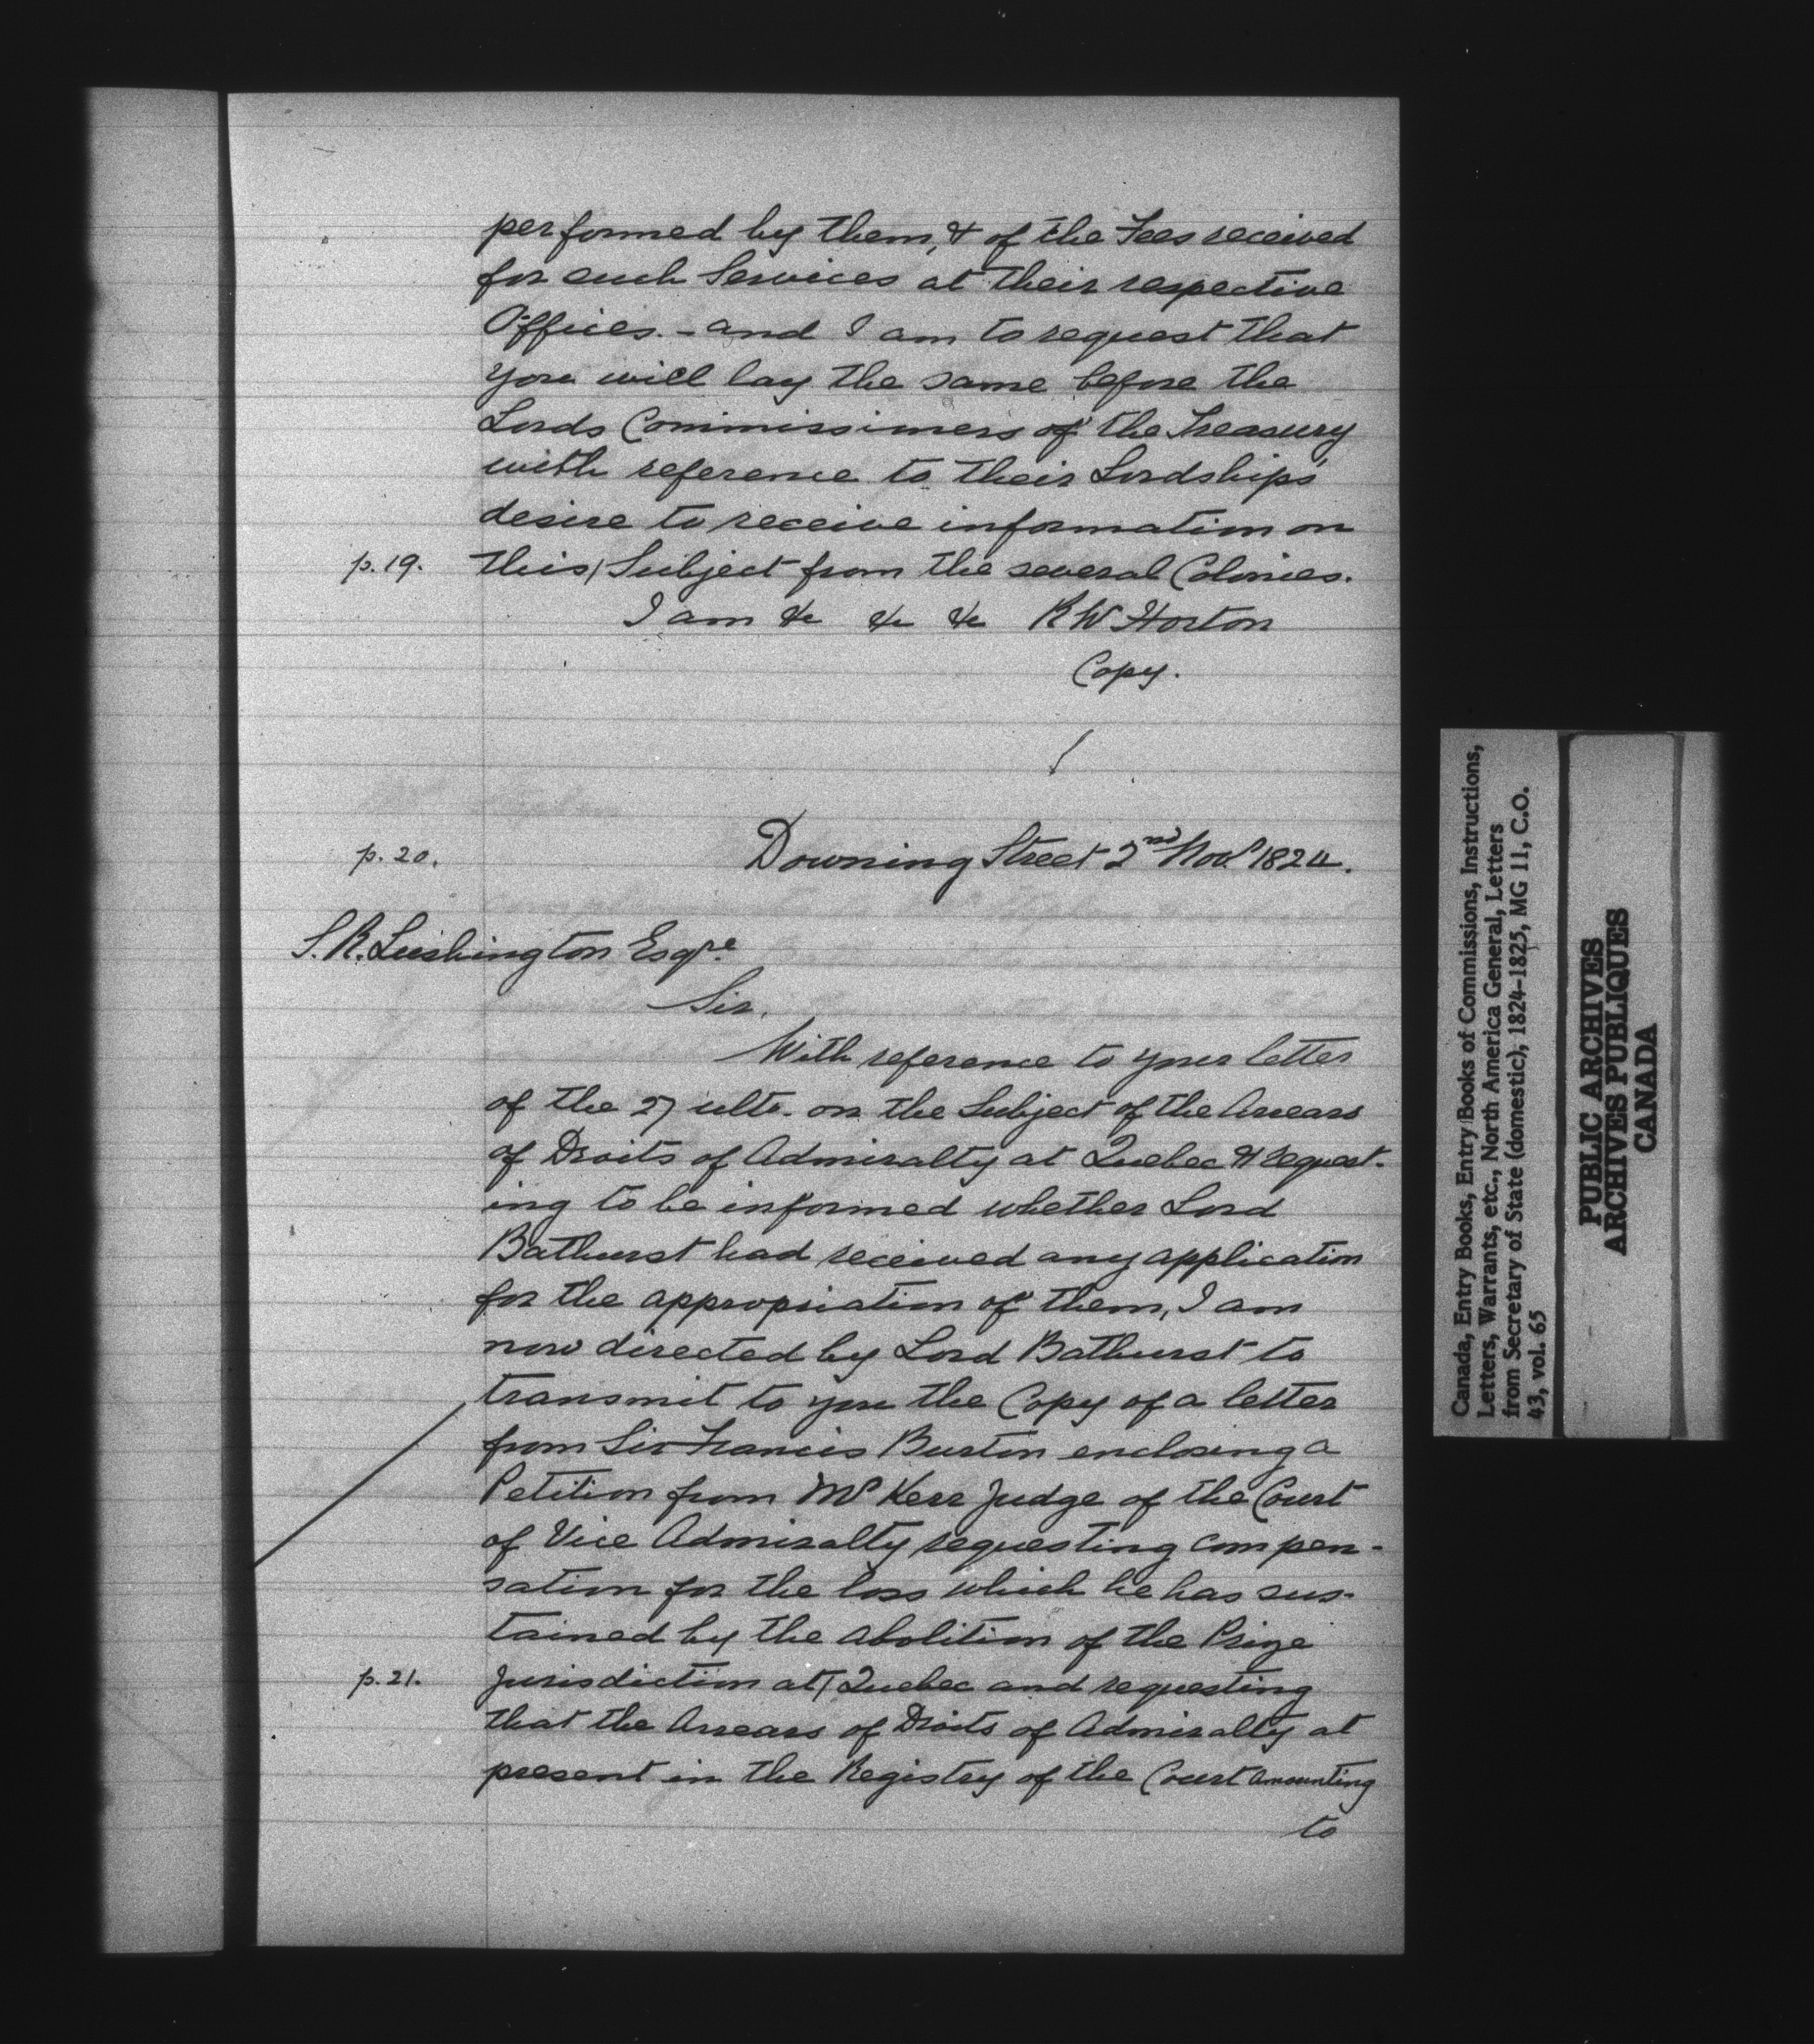 performed by them, & of the Fees received
for such Services at their respective
Offices. - and I am to request that
you will lay the same before the
Lords Commissioners of the Treasury
with reference to their Lordships'
desire to receive information on
p. 19. this / Subject from the several Colonies.
I am &c &c &c R W Horton
Copy.
p. 20. Downing Street 2nd Novr 1824.
S. R. Lushington Esqre.
Sir,
With reference to your letter
of the 27 ulto. on the Subject of the Arrears
of Droits of Admiralty at Quebec & request-
ing to be informed whether Lord
Bathurst had received any application
for the appropriation of them, I am
now directed by Lord Bathurst to
transmit to you the Copy of a letter
from Sir Francis Burton enclosing a
Petition from Mr Kerr Judge of the Court
of Vice Admiralty requesting compen-
sation for the loss which he has sus-
tained by the abolition of the Prize
p. 21. Jurisdiction at / Quebec and requesting
that the Arrears of Droits of Admiralty at
present in the Registry of the Court amounting
to
Canada, Entry Books, Entry Books of Commissions, Instructions,
Letters, Warrants, etc., North America General, Letters
from Secretary of State (domestic), 1824-1825, MG 11, C.O.
43, vol. 65
PUBLIC ARCHIVES
ARCHIVES PUBLIQUES
CANADA